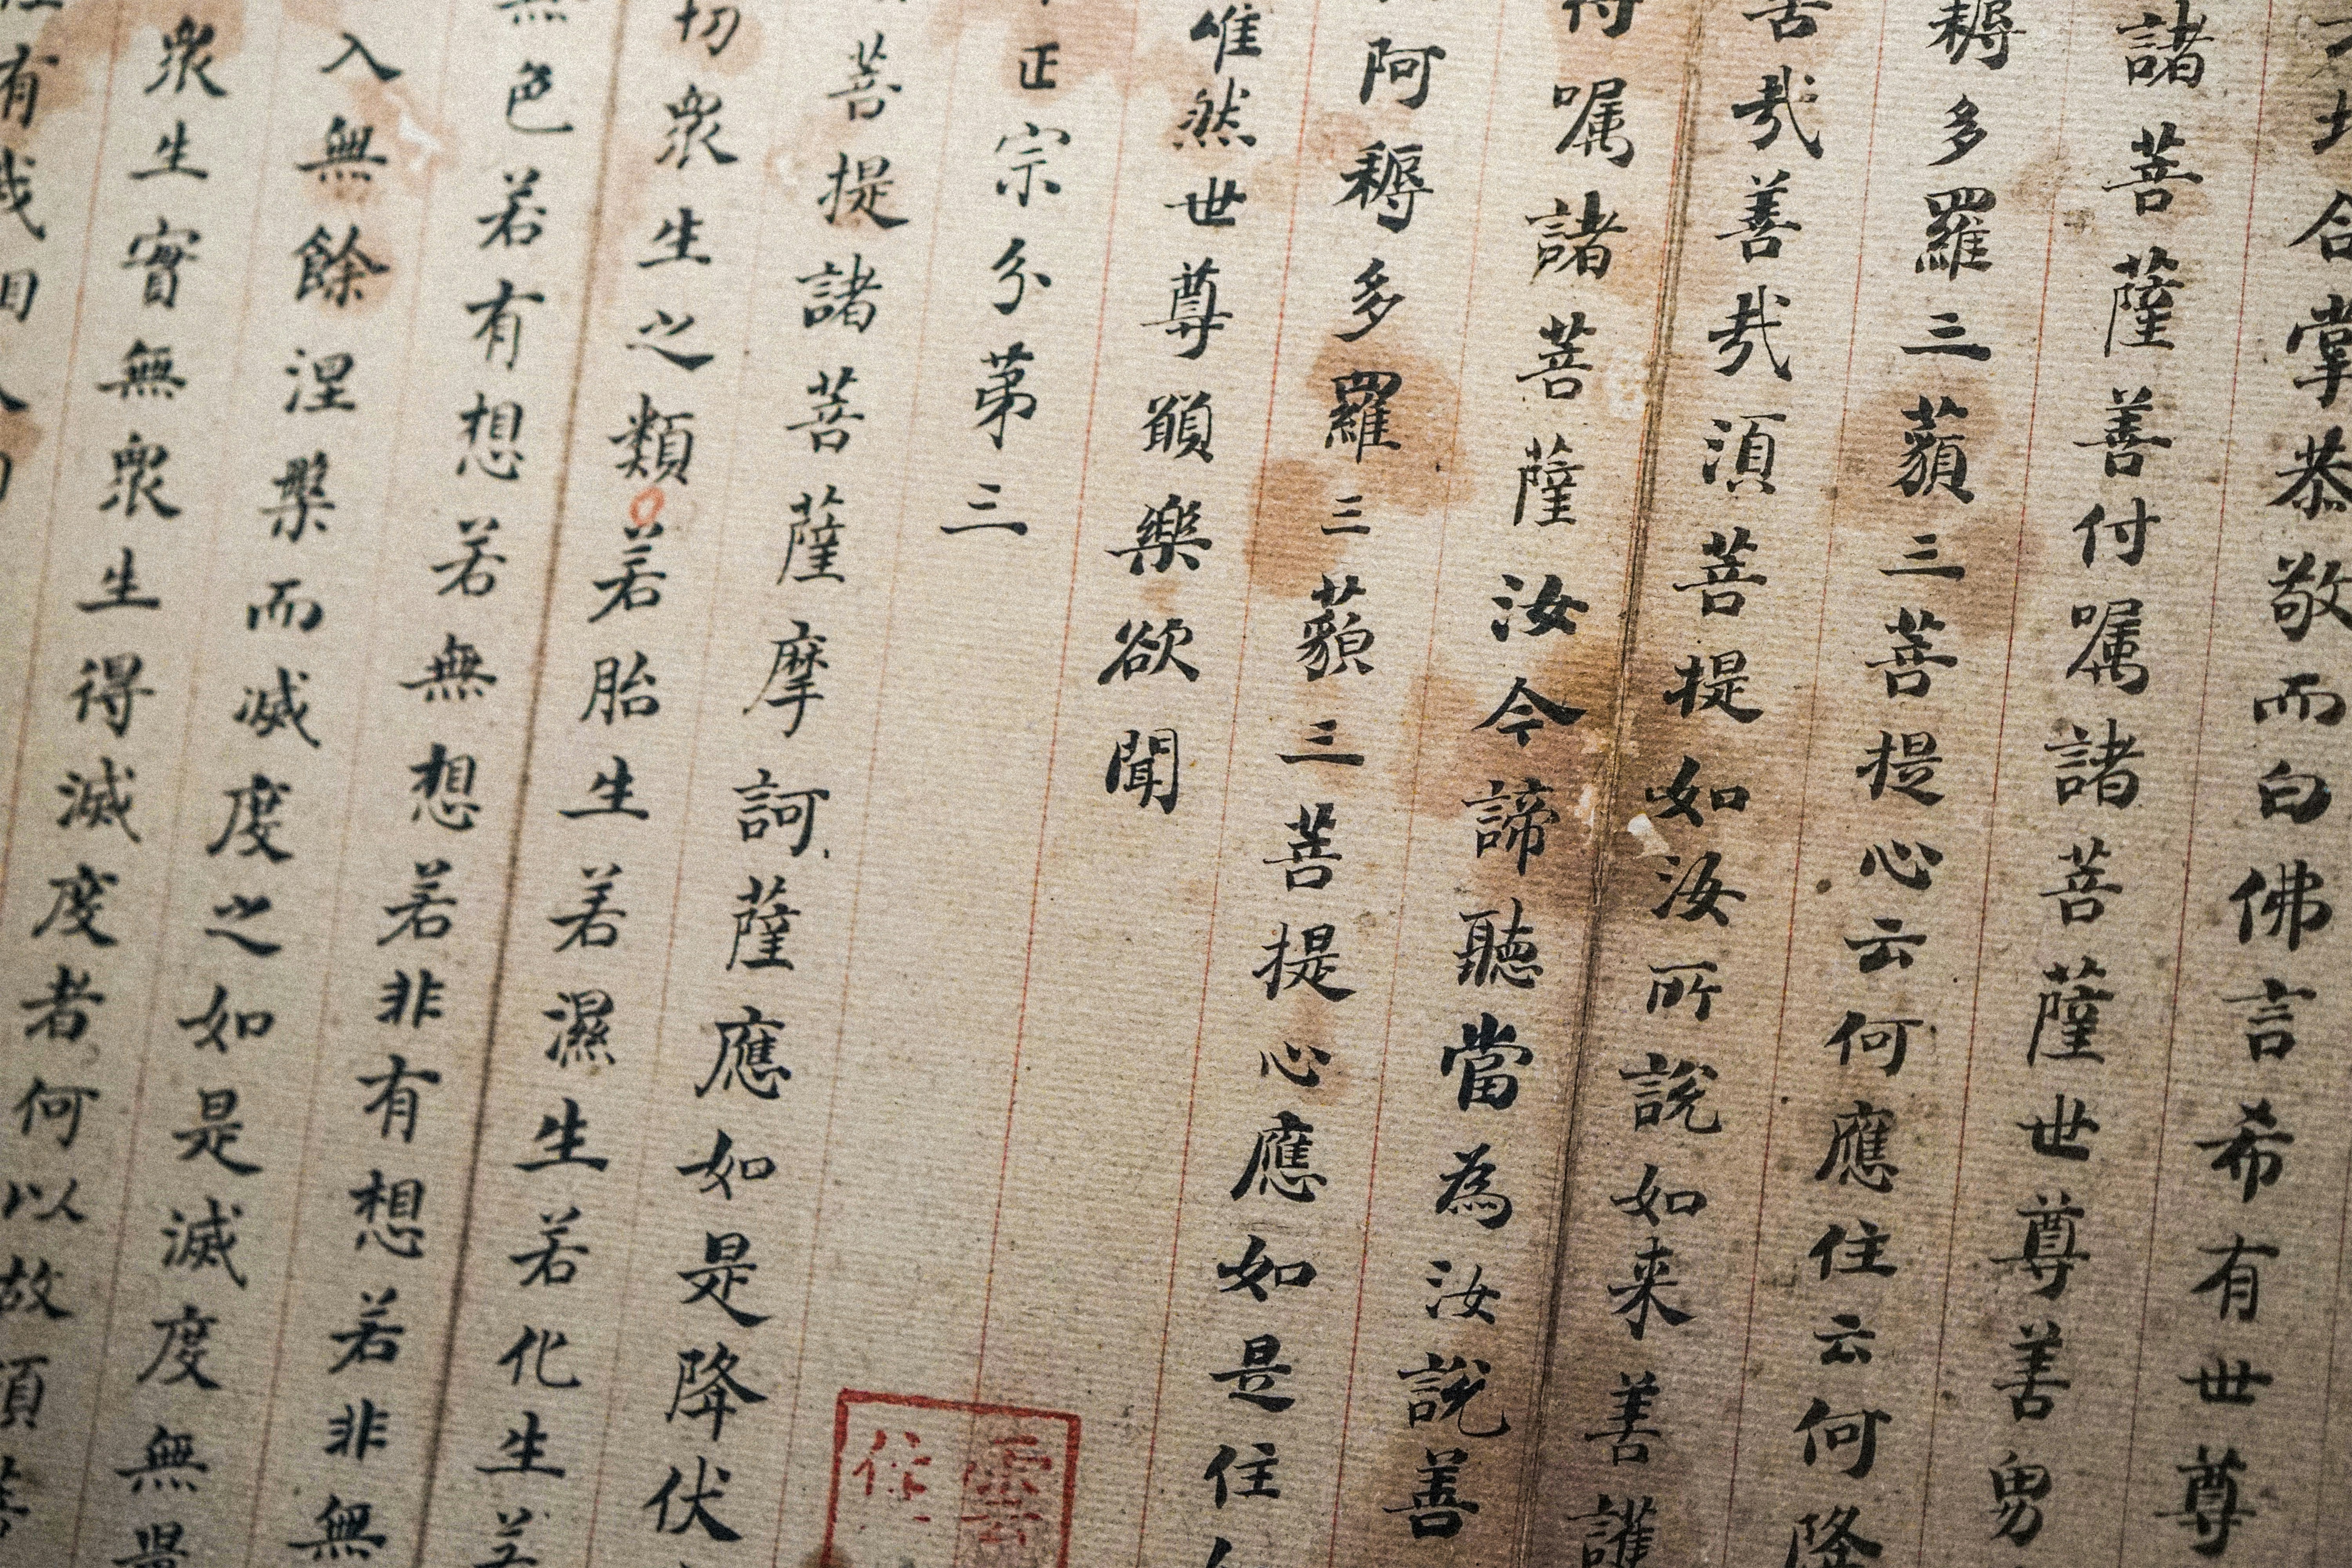 合掌恭敬而白佛言希有世尊
諸菩薩善付嘱諸菩薩世尊善男
耨多羅三藐三菩提心云何應住云何降
哉善哉湏菩提如汝所說如来善護
嘱諸菩薩汝今諦聽當為汝說善
阿耨多羅三藐三菩提心應如是住
唯然世尊願樂欲聞
正宗分第三
菩提諸菩薩摩訶薩應如是降伏
切衆生之類若胎生若濕生若化生若
色若有想若無想若非有想若非無
入無餘涅槃而滅度之如是滅度無量
衆生實無衆生得滅度者何以故湏菩
有我相人相
雲
住